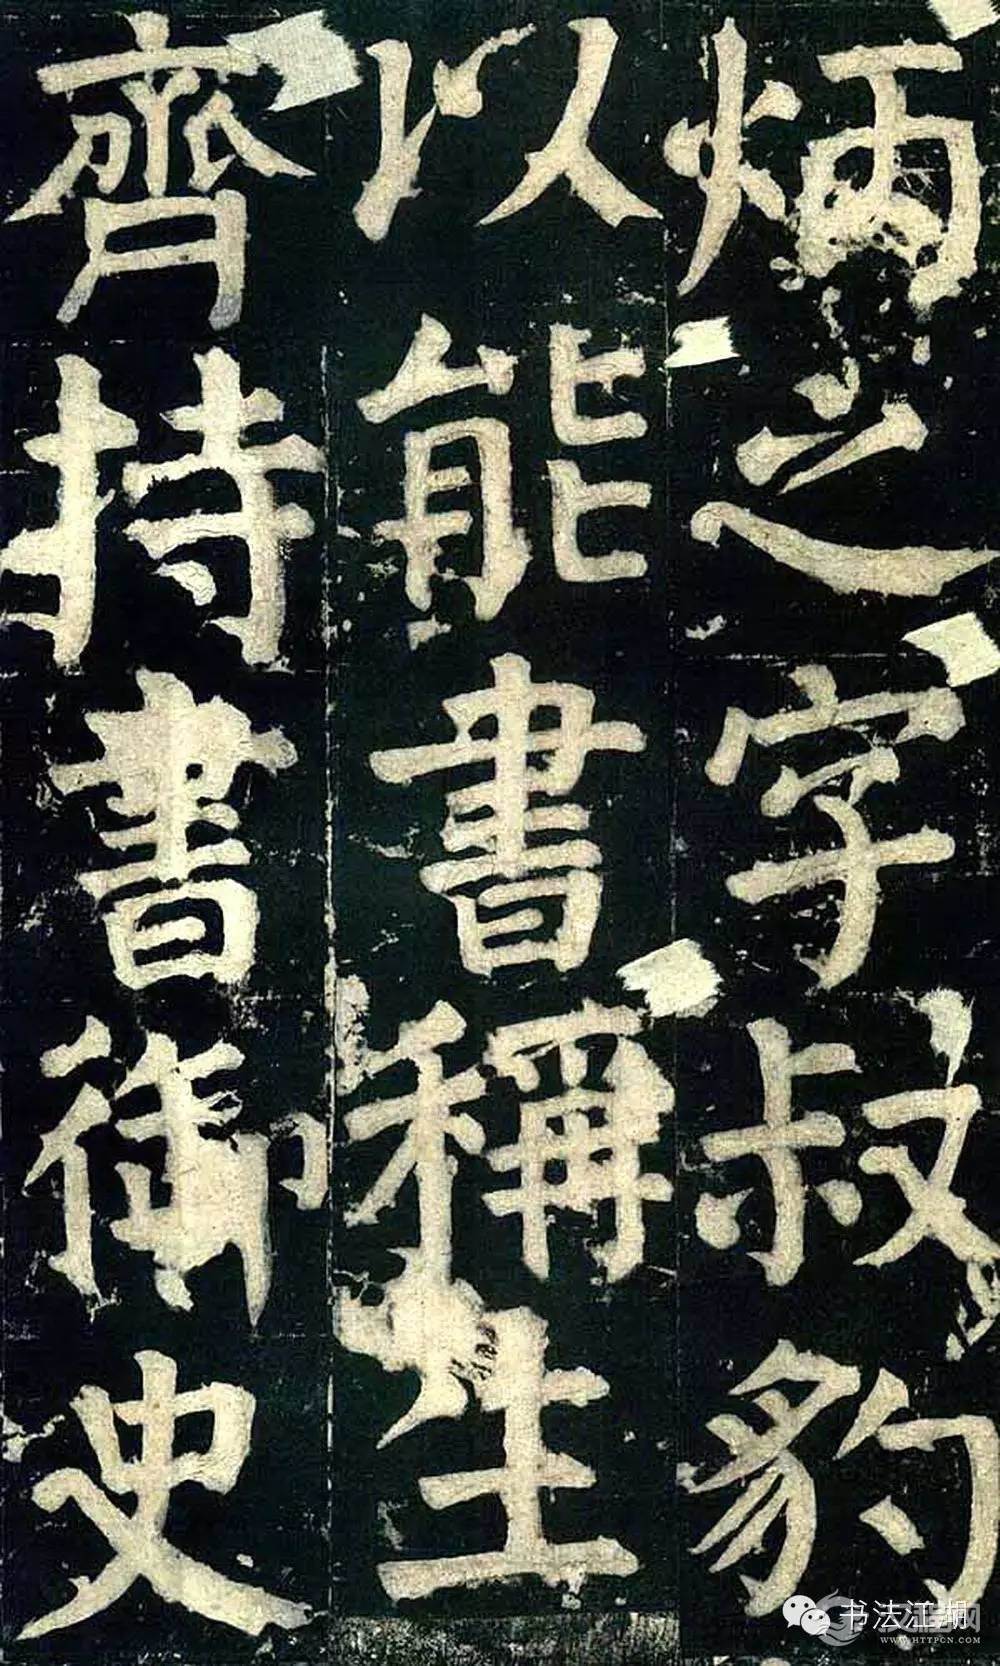 炳之字叔豹
以能書稱生
齊持書御史
书法江湖
WWW.HTTPCN.COM